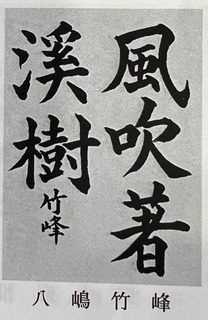 風吹著
溪樹
竹峰
八嶋竹峰